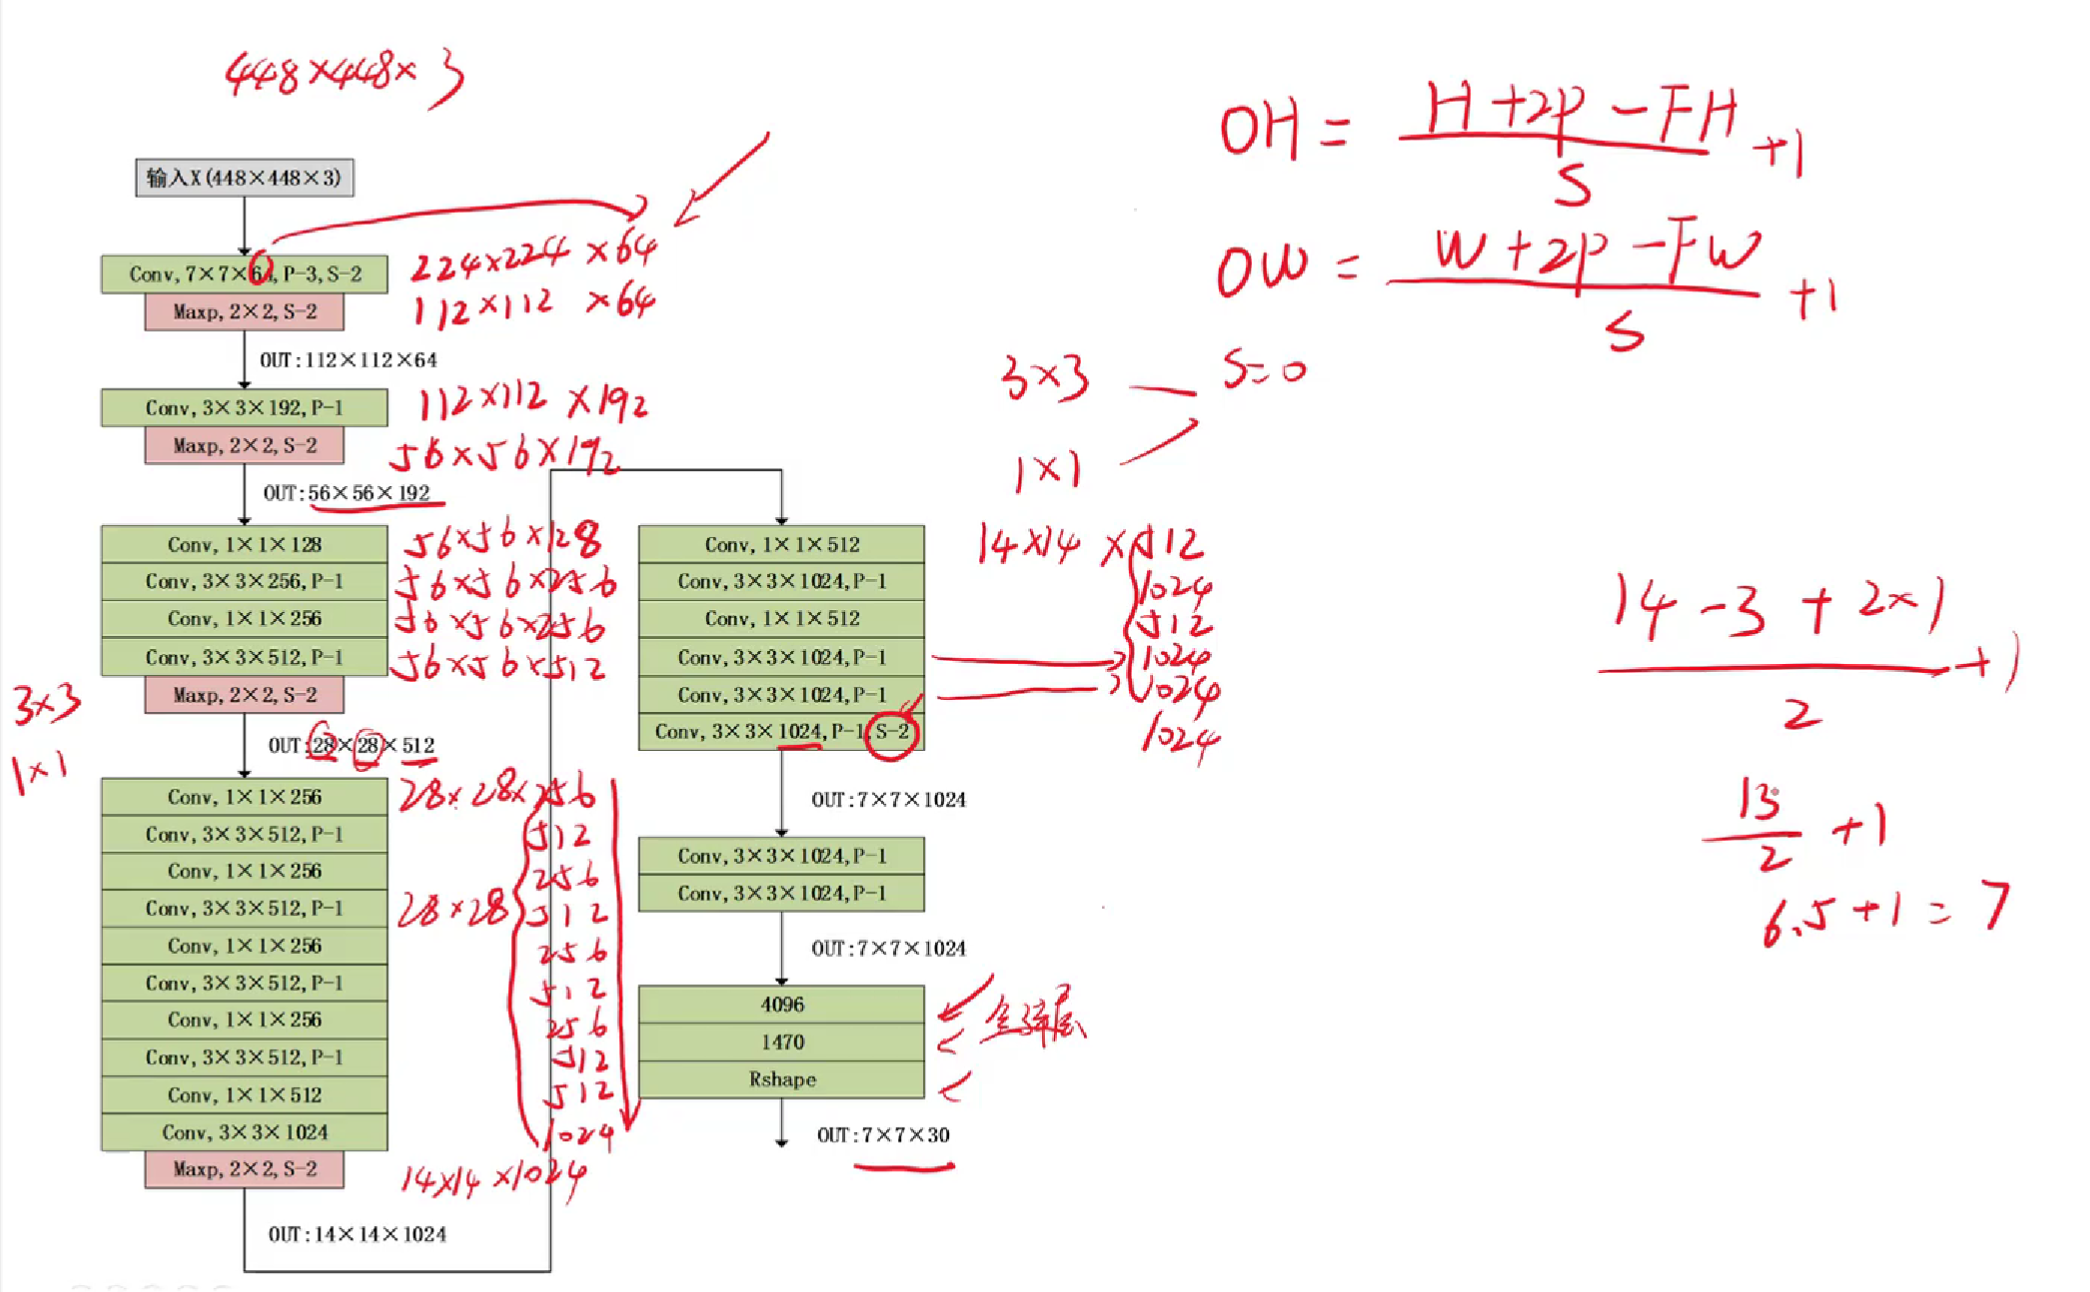 448×448×3
输入X(448×448×3)
Conv, 7×7×64, P-3, S-2
224×224×64
Maxp, 2×2, S-2
112×112×64
OUT:112×112×64
Conv, 3×3×192, P-1
112×112×192
Maxp, 2×2, S-2
56×56×192
OUT:56×56×192
Conv, 1×1×128
56×56×128
Conv, 3×3×256, P-1
56×56×256
Conv, 1×1×256
56×56×256
Conv, 3×3×512, P-1
56×56×512
Maxp, 2×2, S-2
3×3
1×1
OUT:28×28×512
Conv, 1×1×256
28×28×256
Conv, 3×3×512, P-1
512
Conv, 1×1×256
256
Conv, 3×3×512, P-1
28×28
512
Conv, 1×1×256
256
Conv, 3×3×512, P-1
512
Conv, 1×1×256
256
Conv, 3×3×512, P-1
512
Conv, 1×1×512
512
Conv, 3×3×1024
1024
Maxp, 2×2, S-2
14×14×1024
OUT:14×14×1024
Conv, 1×1×512
14×14×512
Conv, 3×3×1024, P-1
1024
Conv, 1×1×512
512
Conv, 3×3×1024, P-1
1024
Conv, 3×3×1024, P-1
1024
Conv, 3×3×1024, P-1, S-2
1024
OUT:7×7×1024
Conv, 3×3×1024, P-1
Conv, 3×3×1024, P-1
OUT:7×7×1024
4096
1470
Rshape
OUT:7×7×30
OH = H+2P-FH / S +1
OW = W+2P-FW / S +1
3×3
S=0
1×1
14-3+2×1 / 2 +1
13 / 2 +1
6.5+1=7